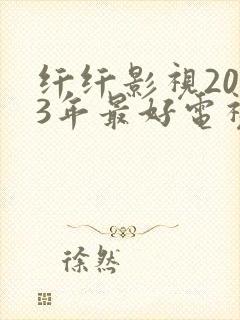 纤纤影視20
3年最好電視
徐然